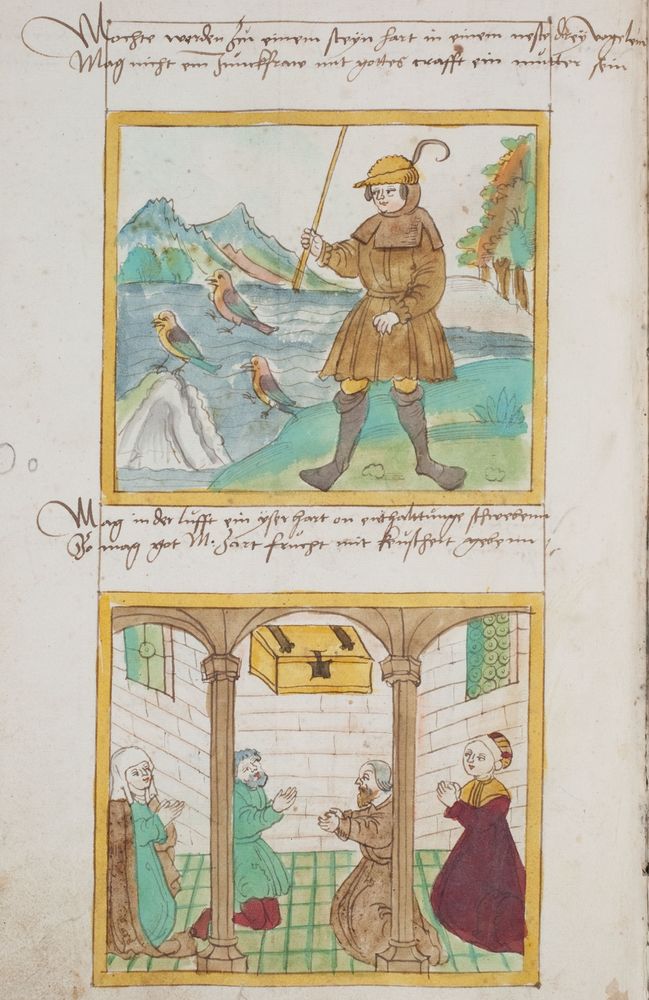 Mochte werden zu einem steyn hart in einem neste drey vogelein
Mag nicht ein Junckfraw mit gottes crafft ein mutter sein
Mag in der lufft ein yser hart on enthalttunge schwebenn
So mag got M. zart frucht mit keuscheit gebenn